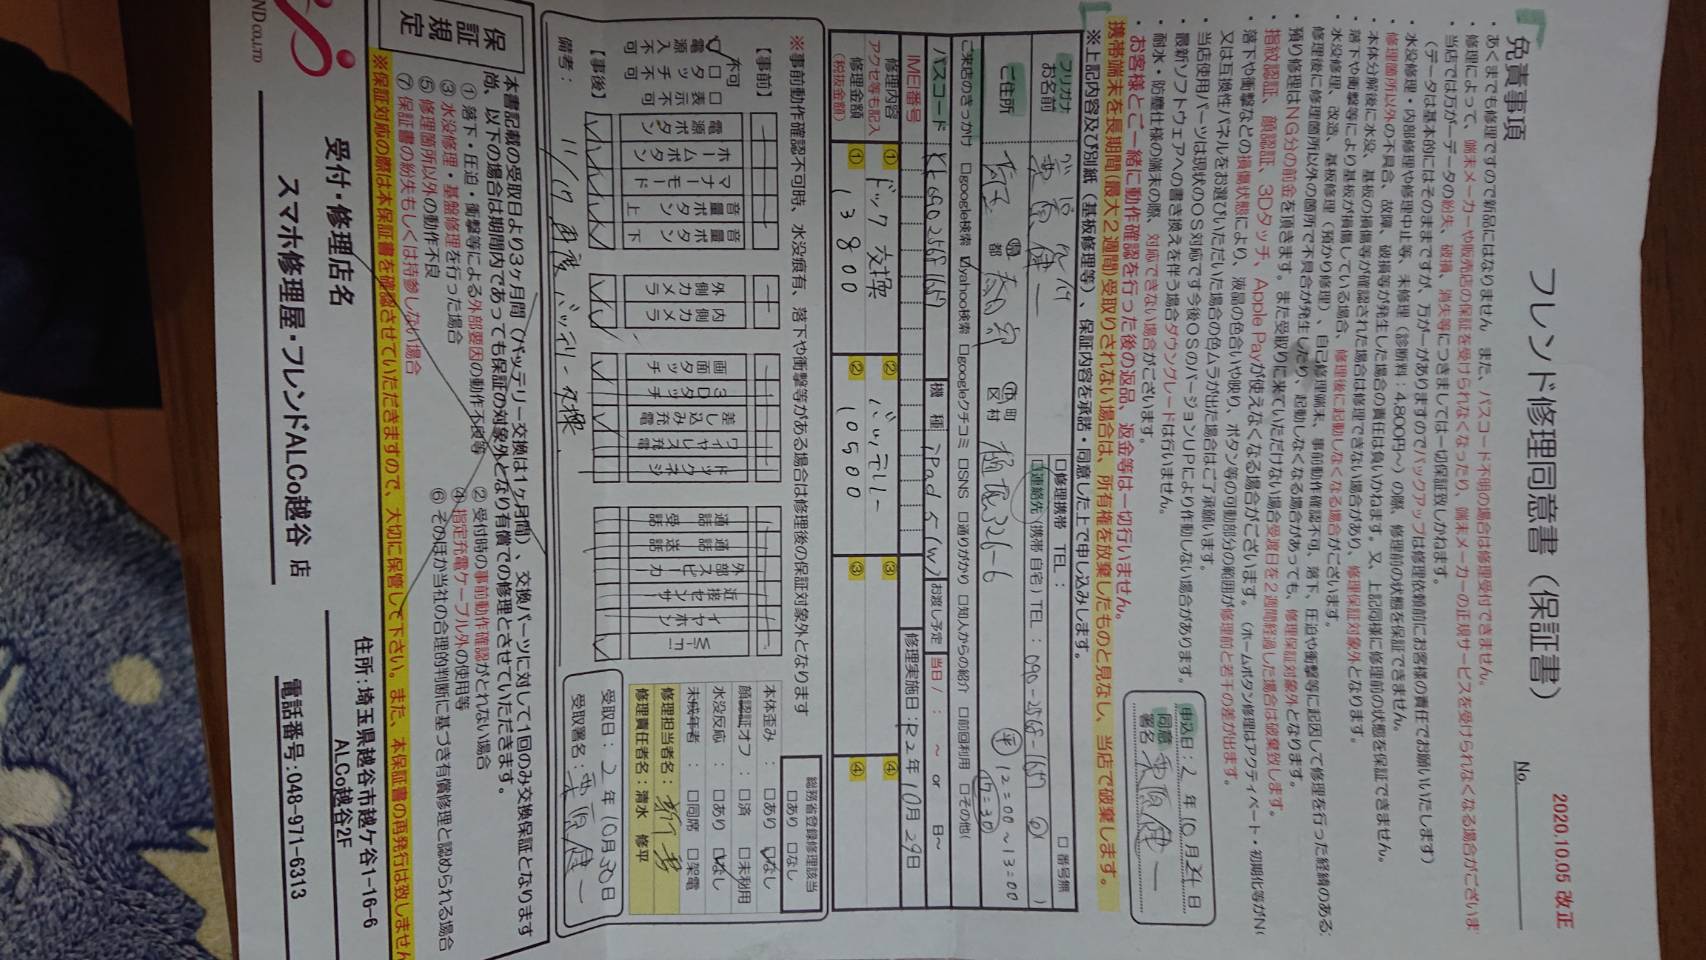 フレンド修理同意書（保証書）
2020.10.05 改正
No.
免責事項
・あくまでも修理ですので新品にはなりません また、パスコード不明の場合は修理受付できません。
・修理によって、端末メーカーや販売店の保証を受けられなくなったり、端末メーカーの正規サービスを受けられなくなる場合がございま
・当店では万が一データの紛失、破損、消失等につきましては一切保証致しかねます。
（データは基本的にはそのままですが、万が一がありますのでバックアップは修理依頼前にお客様の責任でお願いいたします）
・水没修理・内部修理や修理中止等、未修理（診断料：4,800円〜）の際、修理前の状態を保証できません。
・修理箇所以外の不具合、故障、破損等が発生した場合の責任は負いかねます。又、上記同様に修理前の状態を保証できません。
・本体分解後に水没、基板の損傷等が確認された場合は修理できない場合があり、修理保証対象外となります。
・落下や衝撃等により基板が損傷している場合、修理後に起動しなくなる場合がございます。
・水没修理、改造、基板修理（預かり修理）、自己修理端末、事前動作確認不可、落下、圧迫や衝撃等に起因して修理を行った経緯のある
修理後に修理箇所以外の箇所で不具合が発生したり、起動しなくなる場合があっても、修理保証対象外となります。
・預り修理はNG分の前金を頂きます。また受取りに来ていただけない場合受渡日を2週間経過した場合は破棄致します。
・指紋認証、顔認証、3Dタッチ、Apple Payが使えなくなる場合がございます。（ホームボタン修理はアクティベート・初期化等がN
・落下や衝撃などの損傷状態により、液晶の色合いや映り、ボタン等の可動部分の範囲が修理前と若干の差が出ます。
又は互換性パネルをお選びいただいた場合の色ムラが出た場合はご了承願います。
・当店使用パーツは現状のOS対応です今後OSのバージョンUPにより作動しない場合があります。
・最新ソフトウェアへの書き換えを伴う場合ダウングレードは行いません。
・耐水・防塵仕様の端末の際、対応できない場合がございます。
・お客様とご一緒に動作確認を行った後の返品、返金等は一切行いません。
携帯端末を長期間（最大2週間）受取りされない場合は、所有権を放棄したものと見なし、当店で破棄します。
※上記内容及び別紙（基板修理等）、保証内容を承諾・同意した上で申し込みします。
申込日：2 年 10 月 24 日
同意
署名
フリガナ
お名前
□修理携帯 TEL：
□連絡先（携帯 自宅）TEL：090-2568-1657
□ 番号無
ご住所
都 区村 町 326-6
12=00〜13=00
17=30
ご来店のきっかけ □google検索 ☑yahoo検索 □googleクチコミ □SNS □通りがかり □知人からの紹介 □前回利用 □その他（
パスコード
機 種 iPad 5 (W)
お渡し予定 当日 / ： 〜 or 日〜
IMEI番号
修理実施日：R2 年 10月 29日
修理内容
アクセ等も記入
① ドック交換 ② バッテリー ③ ④
修理金額
（税抜金額）
① 13800 ② 10500 ③ ④
※事前動作確認不可時、水没痕有、落下や衝撃等がある場合は修理後の保証対象外となります
総務省登録修理該当
□あり □なし
【事前】
不可
□表示不可
□タッチ不可
電源入不可
電源ボタン
ホームボタン
マナーモード
音量ボタン上
音量ボタン下
外側カメラ
内側カメラ
画面タッチ
3Dタッチ
差し込み充電
ワイヤレス充電
ドックネジ
通話受話
通話送話
外部スピーカー
近接センサー
イヤホン
Wi-Fi
【事後】
本体歪み ：□あり ☑なし
顔認証オフ：□済 □未利用
水没反応 ：□あり ☑なし
未成年者 ：□同席 □架電
修理担当者名：
修理責任者名：清水 修平
備考：11/17 再度バッテリー交換
受取日：2 年 10月 30日
受取署名：
保証規定
本書記載の受取日より3ヶ月間（バッテリー交換は1ヶ月間）、交換パーツに対して1回のみ交換保証となります
尚、以下の場合は期間内であっても保証の対象外となり有償での修理とさせていただきます。
① 落下・圧迫・衝撃等による外部要因の動作不良等 ② 受付時の事前動作確認がとれない場合
③ 水没修理・基盤修理を行った場合 ④ 指定充電ケーブル外の使用等
⑤ 修理箇所以外の動作不良 ⑥ そのほか当社の合理的判断に基づき有償修理と認められる場合
⑦ 保証書の紛失もしくは持参しない場合
※保証対応の際は本保証書を確認させていただきますので、大切に保管して下さい。また、本保証書の再発行は致しません
ND co.,LTD
受付・修理店名
スマホ修理屋・フレンドALCo越谷 店
住所：埼玉県越谷市越ケ谷1-16-6
ALCo越谷2F
電話番号：048-971-6313